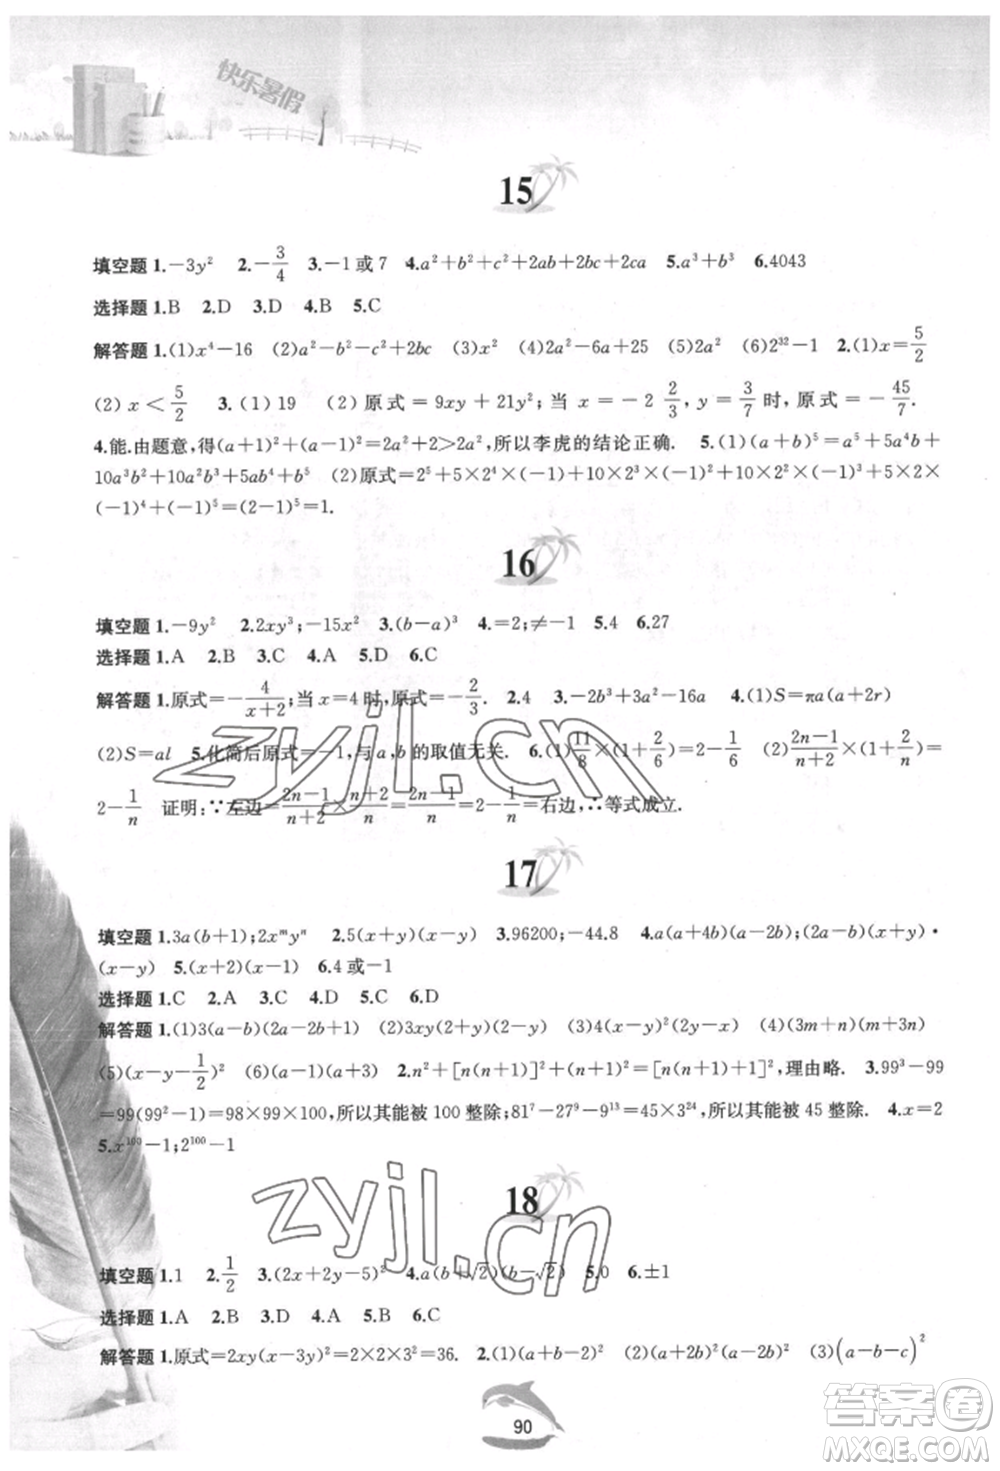 快乐暑假
15
填空题 1.-3y²  2.-3/4  3.-1或7  4.a²+b²+c²+2ab+2bc+2ca  5.a³+b³  6.4043
选择题 1.B  2.D  3.D  4.B  5.C
解答题 1.(1)x⁴-16  (2)a²-b²-c²+2bc  (3)x²  (4)2a²-6a+25  (5)2a²  (6)2³²-1  2.(1)x=5/2
(2) x < 5/2  3.(1) 19  (2) 原式 = 9xy + 21y²; 当 x = -2 2/3, y = 3/7 时, 原式 = -45/7.
4.能.由题意,得(a+1)²+(a-1)²=2a²+2>2a²,所以李虎的结论正确.  5.(1)(a+b)⁵=a⁵+5a⁴b+
10a³b²+10a²b³+5ab⁴+b⁵  (2)原式=2⁵+5×2⁴×(-1)+10×2³×(-1)²+10×2²×(-1)³+5×2×
(-1)⁴+(-1)⁵=(2-1)⁵=1.
16
填空题 1.-9y²  2.2xy³;-15x²  3.(b-a)³  4.=2;≠-1  5.4  6.27
选择题 1.A  2.B  3.C  4.A  5.D  6.C
解答题 1.原式=-4/(x+2);当 x=4 时,原式=-2/3.  2.4  3.-2b³+3a²-16a  4.(1)S=πa(a+2r)
(2)S=al  5.化简后原式=-1,与 a,b 的取值无关.  6.(1)11/8×(1+2/6)=2-1/6  (2)(2n-1)/(n+2)×(1+2/n)=
2-1/n  证明:∵左边=(2n-1)/(n+2)×(n+2)/n=(2n-1)/n=2-1/n=右边,∴等式成立.
17
填空题 1.3a(b+1);2xᵐyⁿ  2.5(x+y)(x-y)  3.96200;-44.8  4.a(a+4b)(a-2b);(2a-b)(x+y)·
(x-y)  5.(x+2)(x-1)  6.4 或-1
选择题 1.C  2.A  3.C  4.D  5.C  6.D
解答题 1.(1)3(a-b)(2a-2b+1)  (2)3xy(2+y)(2-y)  (3)4(2x-y)(x-2y)  (4)(3m+n)(m+3n)
(5)(x-y-1/2)²  (6)(a-1)(a-5)  2.n²+[n(n+1)]²+(n+1)²=[n(n+1)+1]²,理由略.  3.99³-99
=99(99²-1)=98×99×100,所以其能被 100 整除;81⁷-27⁹-9¹³=45×3²⁴,所以其能被 45 整除.  4.x=2
5.x¹⁰⁰-1;2¹⁰⁰-1
18
填空题 1.1  2.1/2  3.(2x+2y-5)²  4.a(b+√2)(b-√2)  5.0  6.±1
选择题 1.A  2.B  3.D  4.A  5.B  6.C
解答题 1.原式=2xy(x-3y)²=2×2×3²=36.  2.(1)(2a-3b)²  (2)(a-2b)(a-2b-2)  (3)(a-b-c)²
90
zyjl.cn
zyjl.cn
答案圈
MXQE.COM